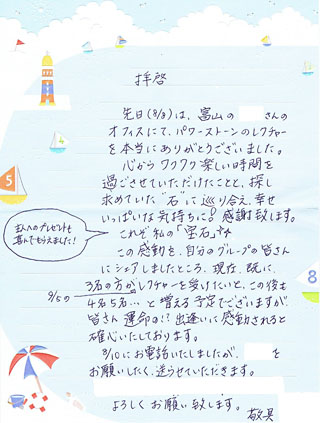 拝啓
先日(8/8)は、富山の さんの
オフィスにて、パワーストーンのレクチャー
を本当にありがとうございました。
心からワクワク楽しい時間を
過ごさせていただけたことと、探し
求めていた"石"に巡り会え、幸せ
いっぱいな気持ちに！感謝致します。
これぞ私の「宝石」☆
主人へのプレゼントも
喜んでもらえました！
この感動を、自分のグループの皆さん
にシェアしましたところ、現在、既に、
9/5の 3名の方がレクチャーを受けたいと、この後も
4名5名…と増える予定でございますが
皆さん運命の！？出逢いに感動されると
確心いたしております。
8/10にお電話いたしましたが、 を
お願いしたく、送らせていただきます。
よろしくお願い致します。
敬具
5
8